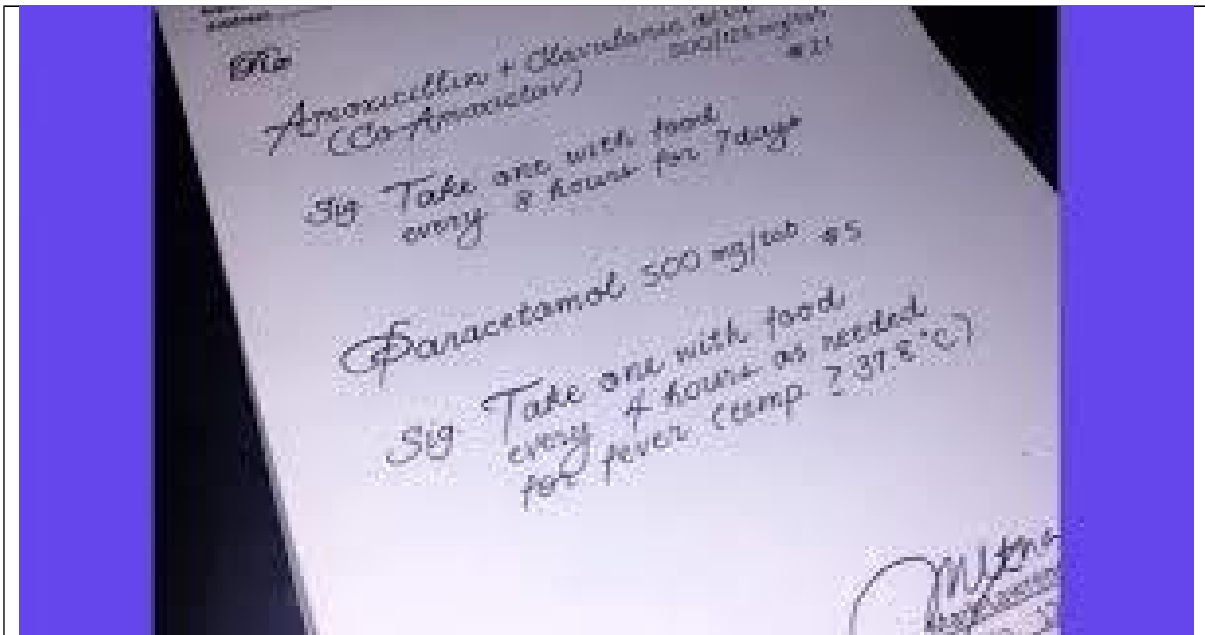 Rx
Amoxicillin + Clavulanic acid
500/125 mg/tab
(Co-Amoxiclav)
#21
Sig. Take one with food
every 8 hours for 7 days
Paracetamol 500 mg/tab #5
Sig. Take one with food
every 4 hours as needed
for fever (temp ≥ 37.8°C)